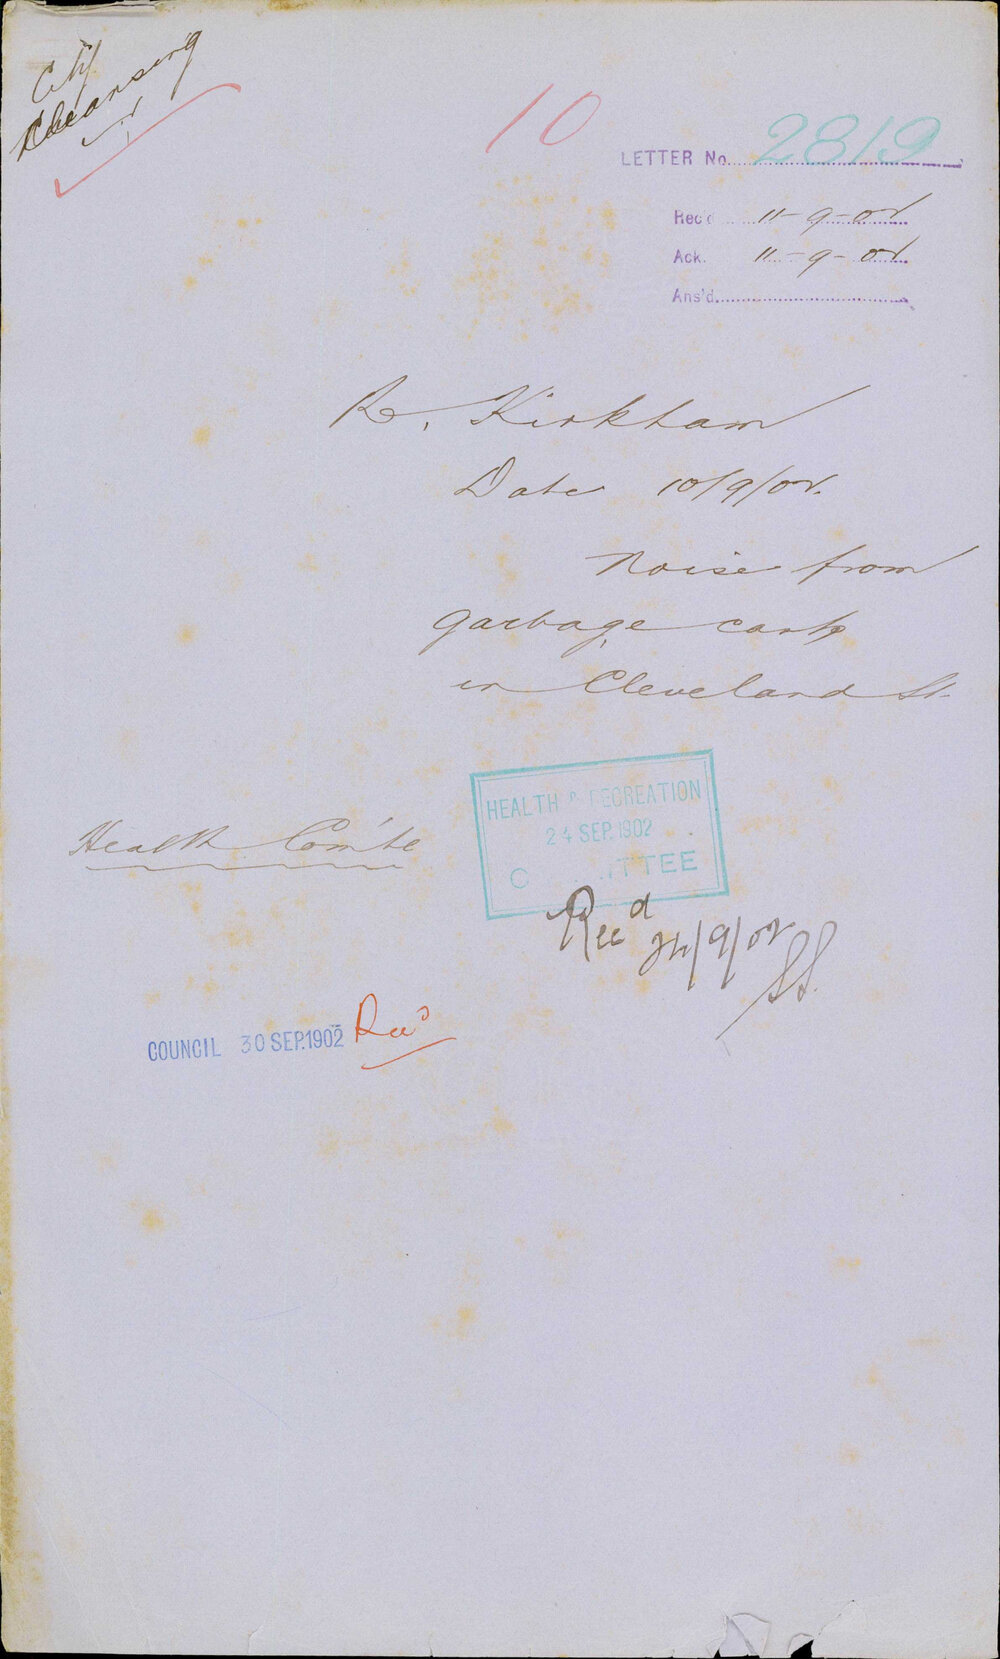 City
Cleansing
10
LETTER No. 2819
Rec'd 11-9-02
Ack. 11-9-02
Ans'd.
R. Kirkham
Date 10/9/02.
Noise from
garbage carts
in Cleveland St.
HEALTH & RECREATION
24 SEP. 1902
COMMITTEE
Health Com'tee
Recd
24/9/02
COUNCIL 30 SEP. 1902 Recd